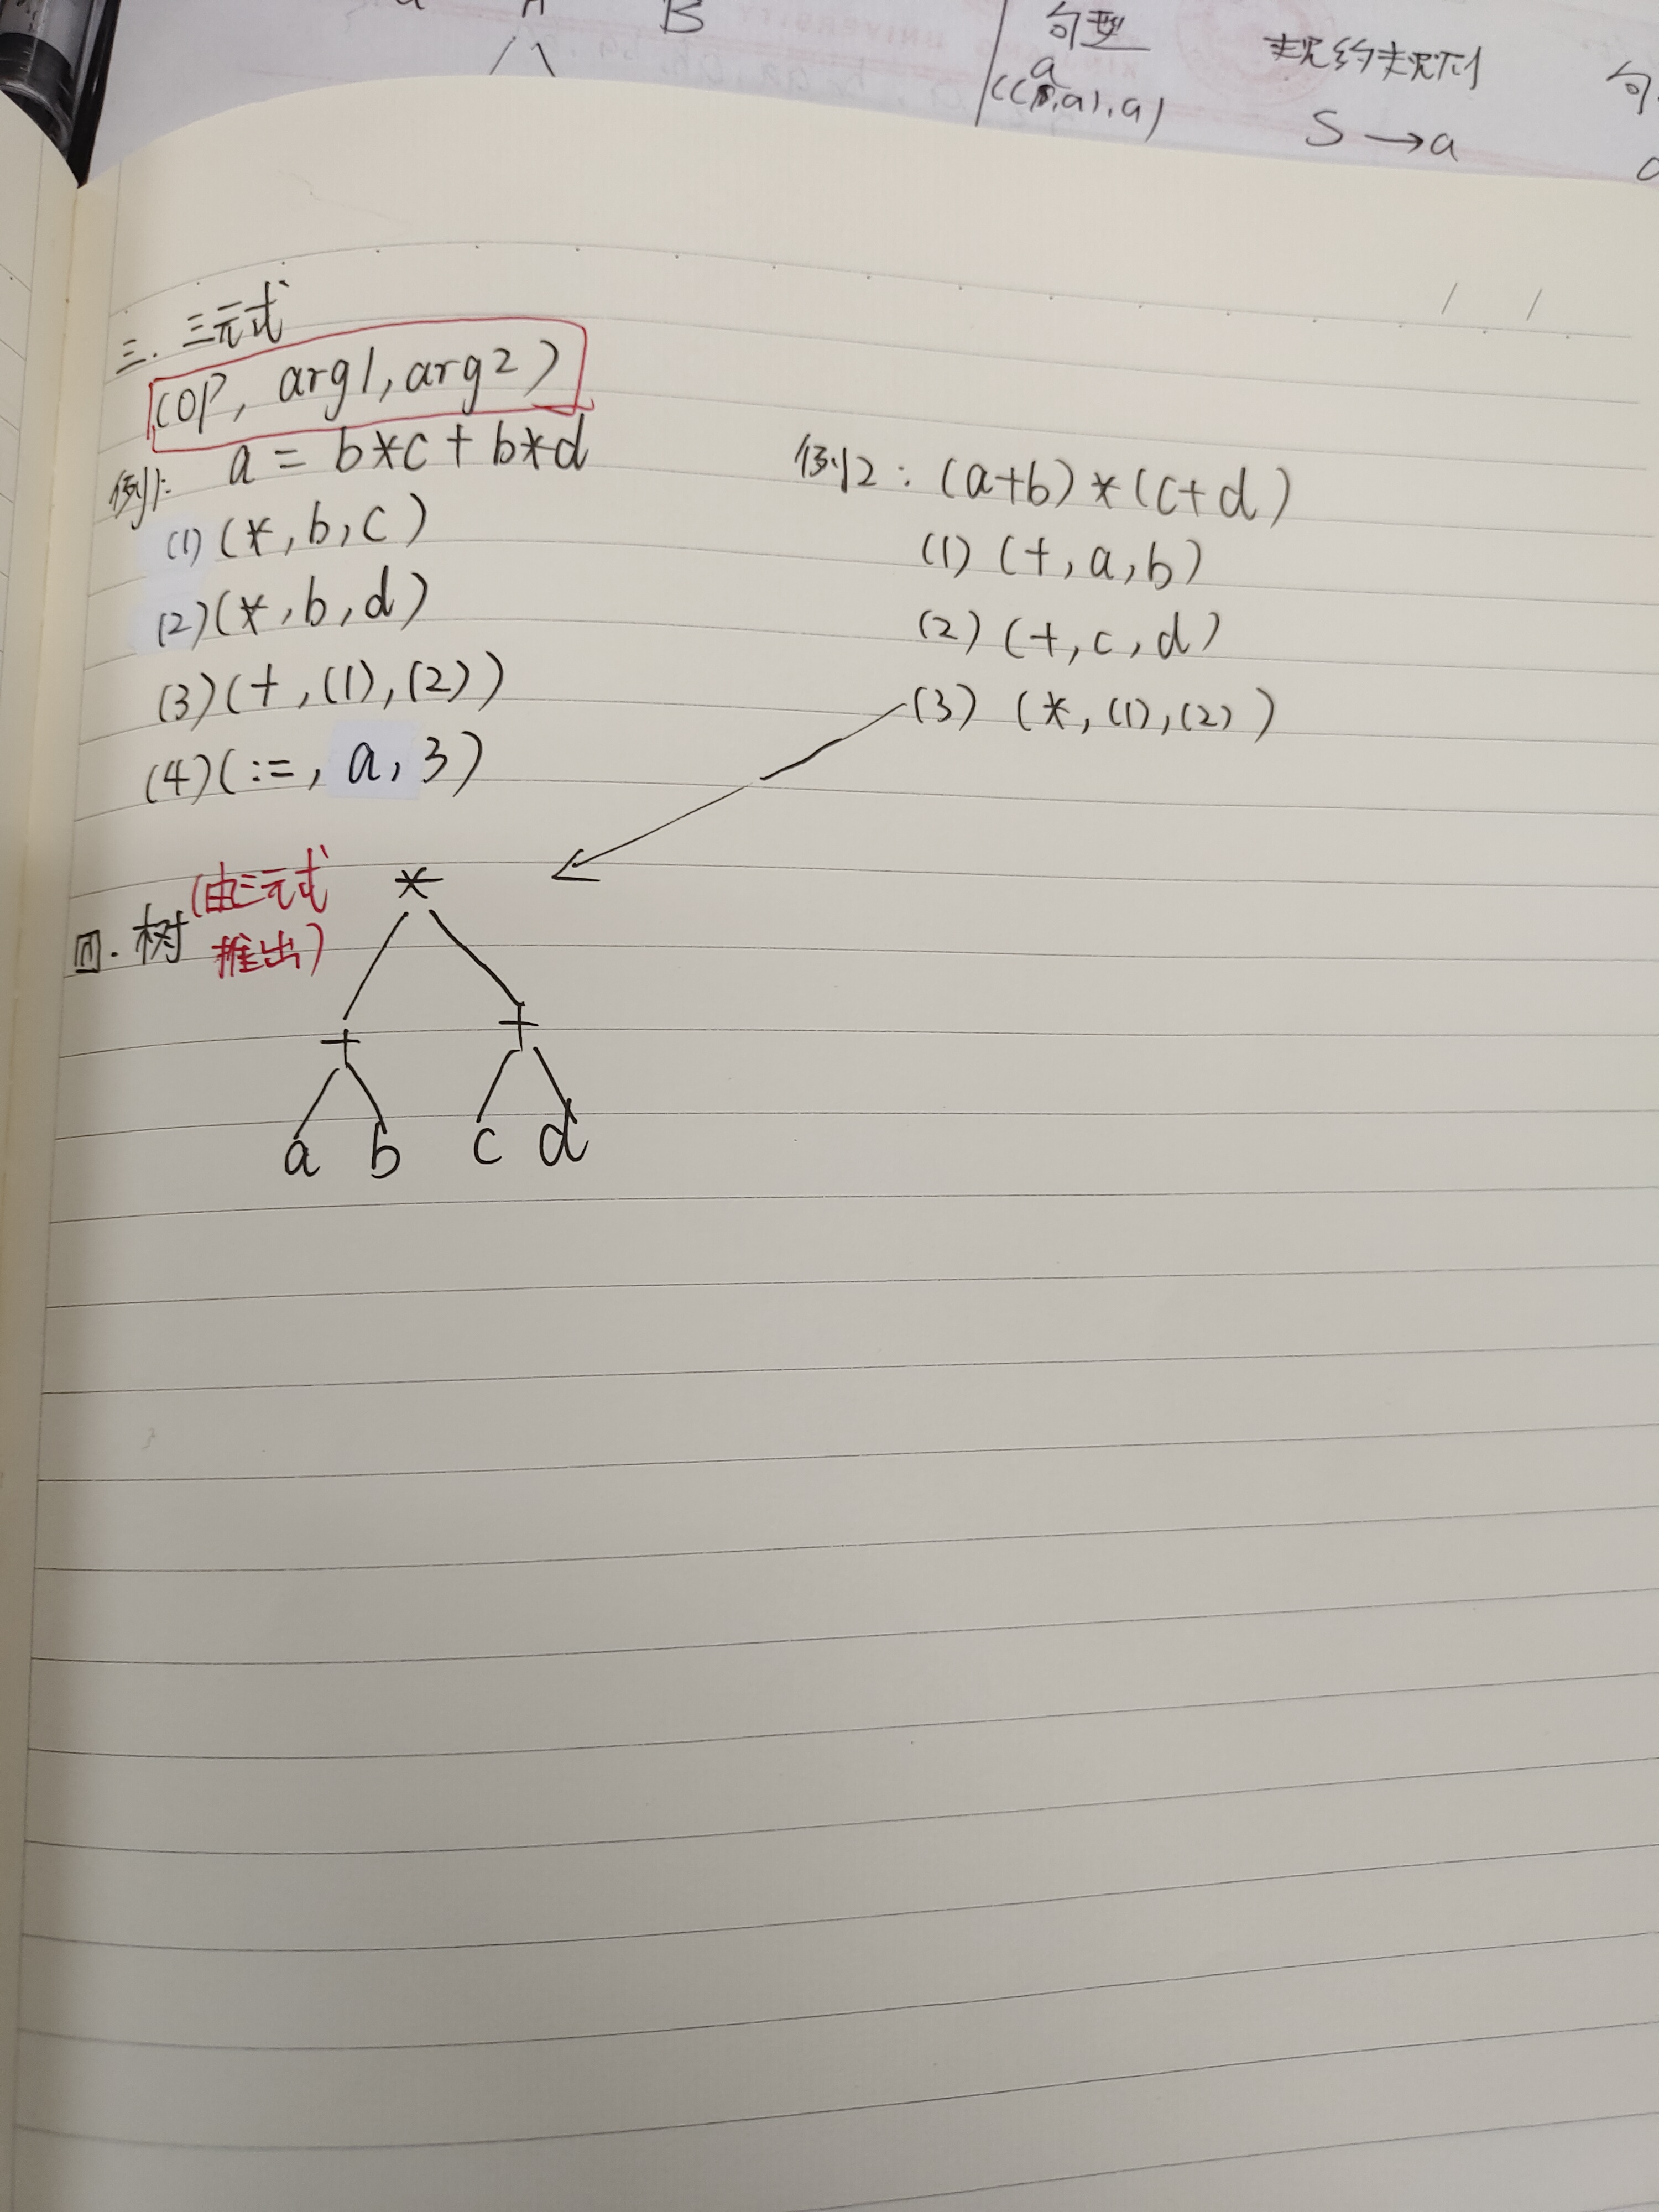 B
句型
规约规则
a
((S,a),a)
S→a
三. 三元式
(OP, arg1, arg2)
例1: a = b*c + b*d
(1) (*, b, c)
(2) (*, b, d)
(3) (+, (1), (2))
(4) (:=, a, 3)
例2: (a+b)*(c+d)
(1) (+, a, b)
(2) (+, c, d)
(3) (*, (1), (2))
四. 树 (由三元式
推出)
*
+ +
a b c d